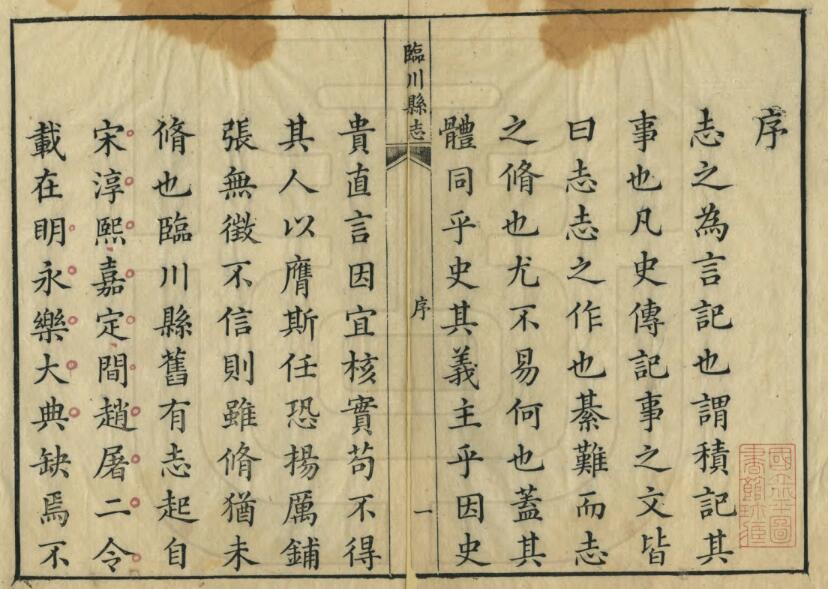 序
志之為言記也謂積記其
事也凡史傳記事之文皆
曰志志之作也綦難而志
之脩也尤不易何也蓋其
體同乎史其義主乎因史
臨川縣志
序
一
貴直言因宜核實苟不得
其人以膺斯任恐揚厲鋪
張無徵不信則雖脩猶未
脩也臨川縣舊有志起自
宋淳熙嘉定間趙屠二令
載在明永樂大典缺焉不